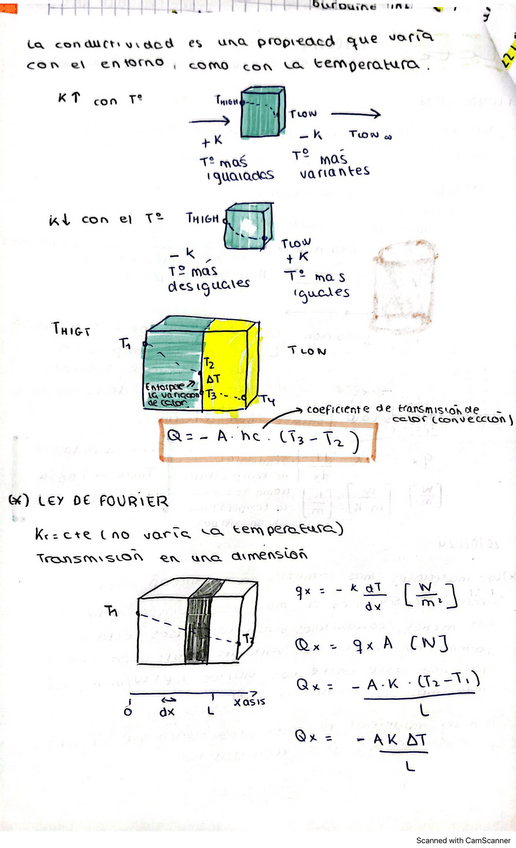 La conductividad es una propiedad que varía
con el entorno, como con la temperatura.
K↑ con Tº
THIGH
TLOW
+K
- K
TLOW ∞
Tº más
igualados
Tº más
variantes
K↓ con el Tº
THIGH
TLOW
- K
+ K
Tº más
desiguales
Tº mas
iguales
THIGT
T1
TLOW
T2
ΔT
Entorpece
la variación
de calor
T3
T4
coeficiente de transmisión de
calor (convección)
Q = - A · hc · (T3 - T2)
(*) LEY DE FOURIER
Kr = cte (no varía la temperatura)
Transmisión en una dimensión
T1
T2
0
dx
L
x asis
qx = - k dT/dx [W/m²]
Qx = qx A [N]
Qx = - A·K·(T2-T1)/L
Qx = - A K ΔT/L
Scanned with CamScanner